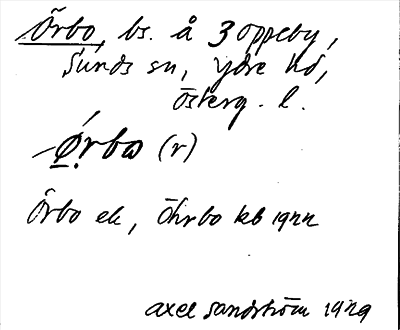 Örbo, bs. å 3 Oppeby,
Sunds sn, Ydre hd,
Österg. l.
Ǿ̣rbω (r)
Örbo ek, Öhrbo kb 1922
Axel Sandström 1929